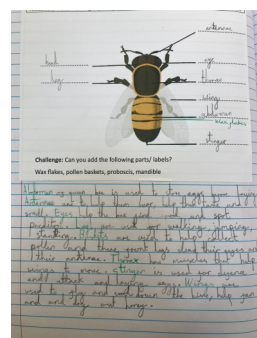 antennae
head
eye
leg
thorax
wing
abdomen
Wax flakes
stinger
Challenge: Can you add the following parts/ labels?
Wax flakes, pollen baskets, proboscis, mandible
Abdomen is queen bee is used to store eggs before laying
Antennae are to help them hear, help them taste and
smell. Eyes help the bee find food and spot
predators. Legs are use for walking, jumping,
standing. are used to help collect
pollen and there comb has clean their eyes and
their antennae. Thorax has muscles that help
wings to move. Stinger is used for defence
and attack and laying eggs. Wings are
used to fly and cool down the hive, help
and and dry out honey.